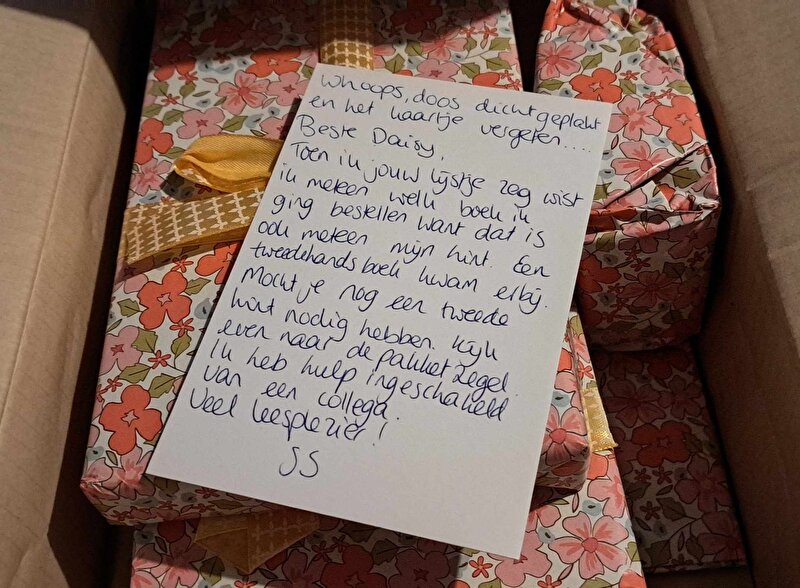 Whoops, doos dichtgeplakt
en het kaartje vergeten....
Beste Daisy,
Toen ik jouw lijstje zag wist
ik meteen welk boek ik
ging bestellen want dat is
ook meteen mijn hint. Een
tweedehands boek kwam erbij.
Mocht je nog een tweede
hint nodig hebben. Kijk
even naar de pakketzegel.
Ik heb hulp ingeschakeld
van een collega.
Veel leesplezier!
SS